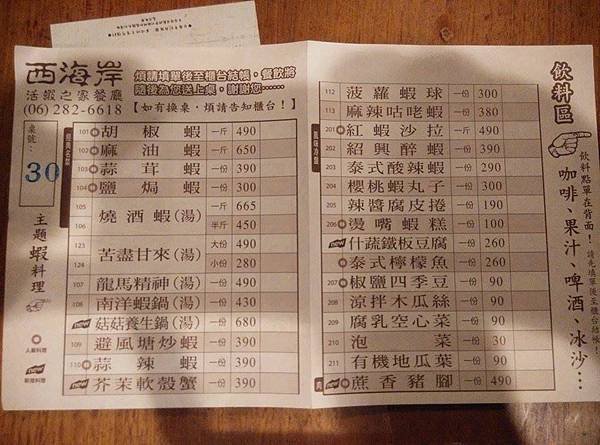 西海岸
活蝦之家餐廳
(06) 282-6618
煩請填單後至櫃台結帳，餐飲將
隨後為您送上桌，謝謝您……
【如有換桌，煩請告知櫃台！】
桌號：
30
主題蝦料理
人氣料理
新推料理
101 胡椒蝦 一斤 490
102 麻油蝦 一斤 650
103 蒜茸蝦 一份 390
104 鹽焗蝦 一份 390
105 燒酒蝦(湯) 一斤 665
106 半斤 450
123 苦盡甘來(湯) 大份 490
124 小份 280
107 龍馬精神(湯) 一份 490
108 南洋蝦鍋(湯) 一份 430
菇菇養生鍋(湯) 一份 680
109 避風塘炒蝦 一份 390
110 蒜辣蝦 一份 390
芥茉軟殼蟹 一份 390
112 菠蘿蝦球 一份 300
113 麻辣咕咾蝦 一份 380
風味冷盤
201 紅蝦沙拉 一斤 490
202 紹興醉蝦 一份 390
203 泰式酸辣蝦 一份 290
204 櫻桃蝦丸子 一份 300
205 辣醬腐皮捲 一份 190
206 燙嘴蝦糕 一份 100
什蔬鐵板豆腐 一份 260
泰式檸檬魚 一份 260
207 椒鹽四季豆 一份 90
208 涼拌木瓜絲 一份 90
209 腐乳空心菜 一份 90
210 泡菜 一份 30
211 有機地瓜葉 一份 90
蔗香豬腳 一份 490
飲料區
飲料點單在背面！
請先填單後至櫃台結帳！
咖啡、果汁、啤酒、冰沙…